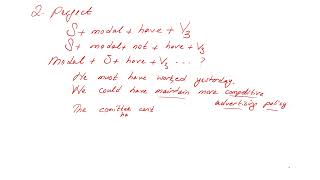 2. Perfect
S + modal + have + V3
S + modal + not + have + V3
Modal + S + have + V3 ... ?
He must have worked yesterday.
We could have maintain more competitive
advertising policy
The comittee cant
ha